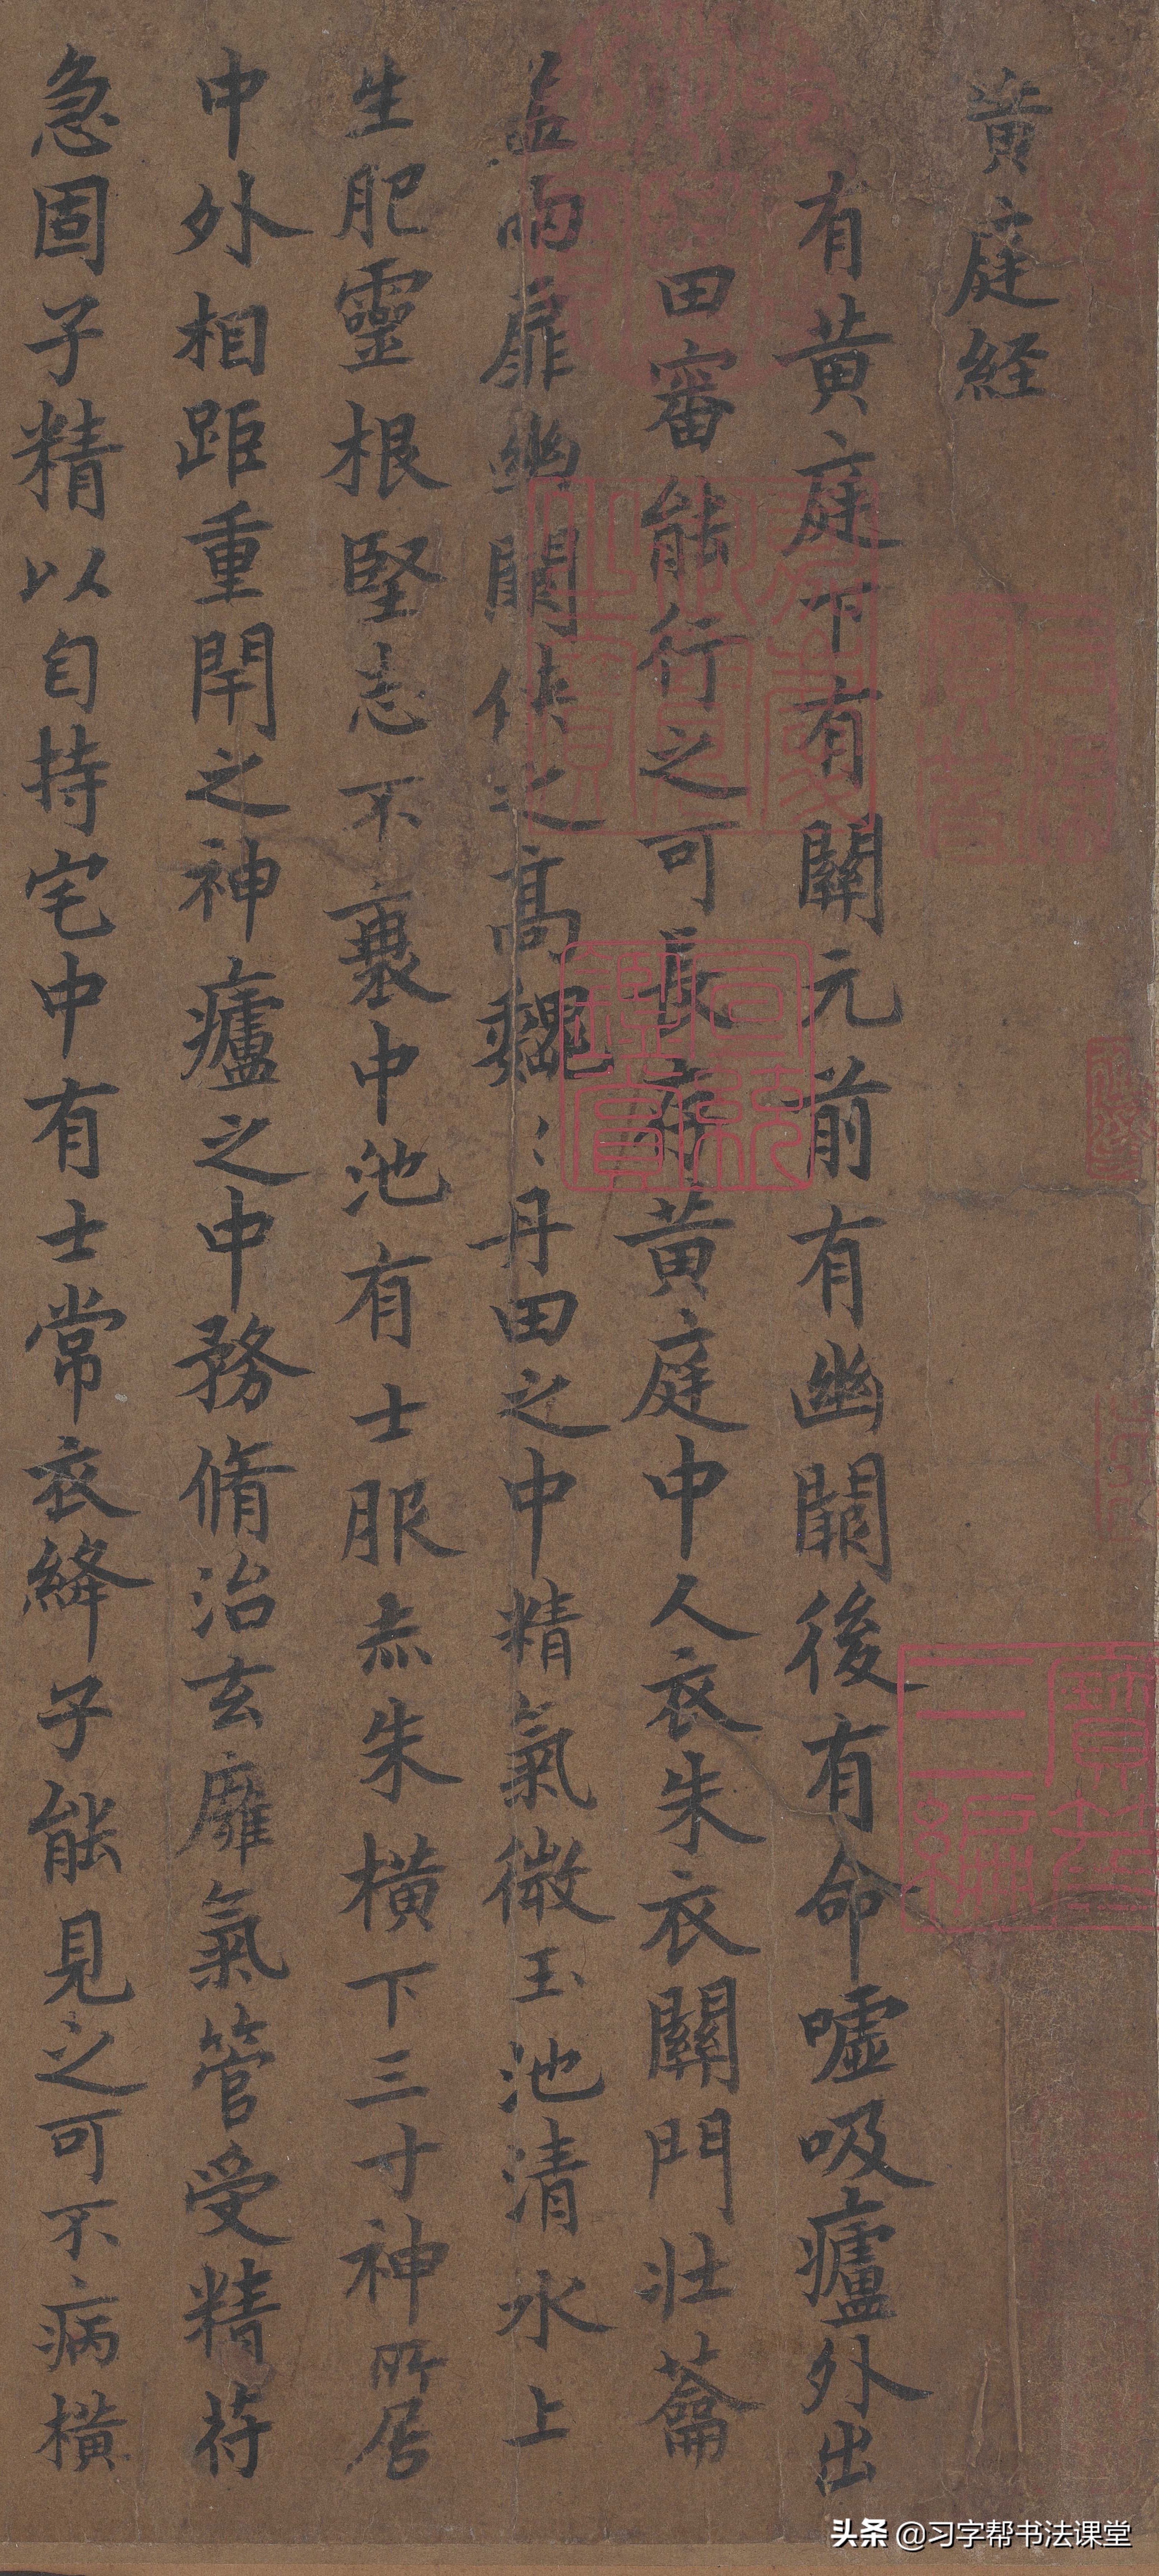 黄庭経
有黄庭下有關元前有幽闕後有命嘘吸廬外出
田審能行之可長存黄庭中人衣朱衣關門壯蘥
盖兩扉幽闕俠之高魏〻丹田之中精氣微玉池清水上
生肥靈根堅志不衰中池有士服赤朱横下三寸神所居
中外相距重閇之神廬之中務脩治玄㢙氣管受精苻
急固子精以自持宅中有士常衣絳子能見之可不病横
宣和
寶笈三編
头条 @习字帮书法课堂